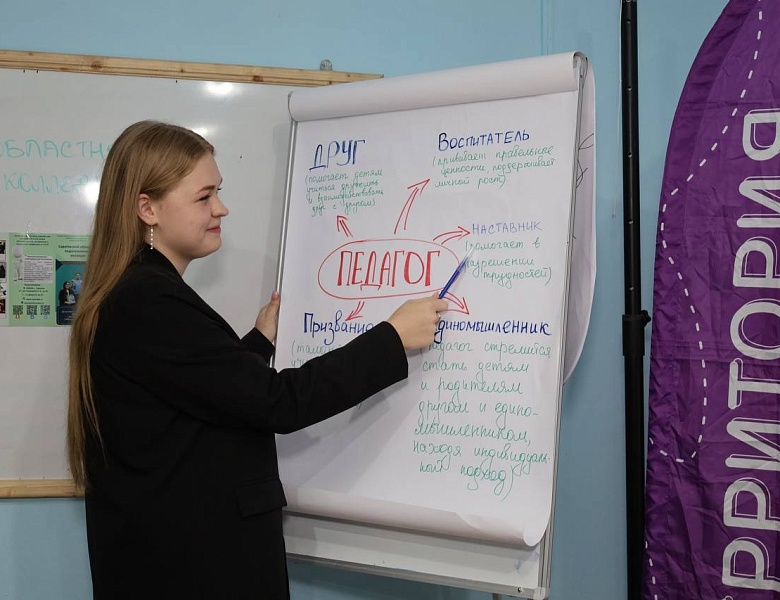 ОБЛАСТН
КОЛЛЕ
ДРУГ
(помогает детям
учиться дружить
и взаимодействовать
друг с другом)
ВОСПИТАТЕЛЬ
(прививает правильные
ценности, поддерживает
личной рост)
НАСТАВНИК
(помогает в
разрешении
трудностей)
ПЕДАГОГ
Призвание
ДИНОМЫШЛЕННИК
педагог стремится
стать детям
и родителям
другом и едино-
мышленником,
находя индивидуаль-
ный подход)
РРИТОРИЯ